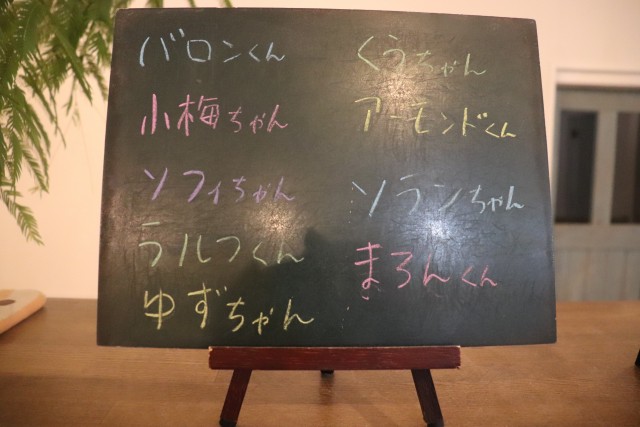 バロンくん
小梅ちゃん
ソフィちゃん
ラルフくん
ゆずちゃん
くうちゃん
アーモンドくん
ソランちゃん
まろんくん